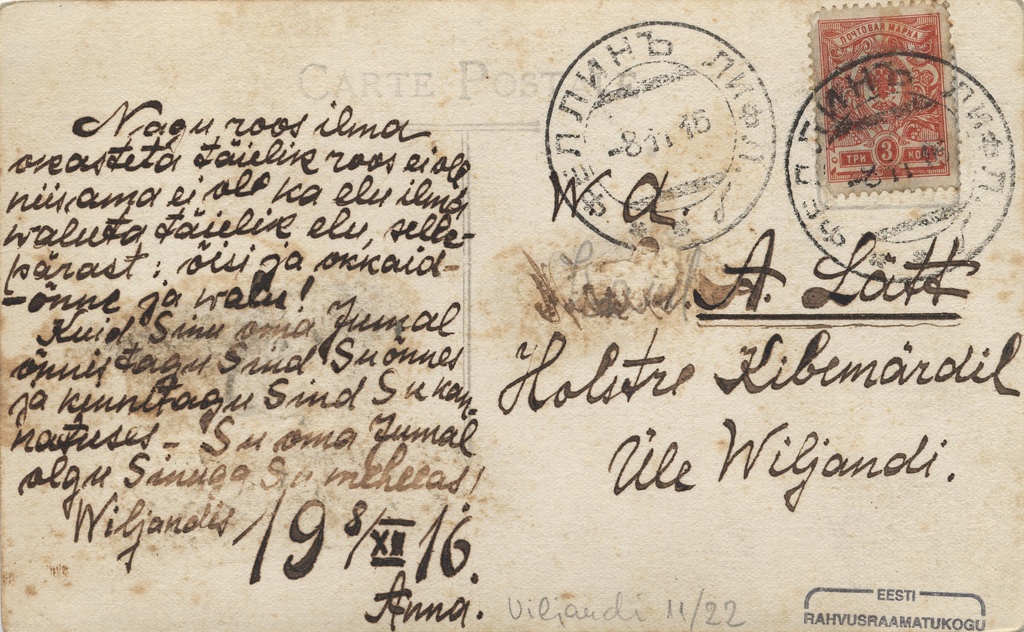 CARTE POSTALE
Nagu roos ilma
okasteta täielik roos ei ole
niisama ei ole ka elu ilma
waluta täielik elu, selle-
pärast: õisi ja okkaid –
– õnne ja walu!
Kuid Sinu oma Jumal
õnnistagu Sind Su õnnes
ja kinnitagu Sind Su kan-
natuses – Su oma Jumal
olgu Sinuga
Wiljandis
19 8/XII 16.
Anna.
ФЕЛЛИНЪ ЛИФЛ
-8 11 16
ПОЧТОВАЯ МАРКА
ТРИ 3 КОП
ФЕЛЛИНЪ ЛИФЛ
W. a.
A. Lätt
Holstre Kibemärdil
Üle Wiljandi.
Viljandi 11/22
EESTI
RAHVUSRAAMATUKOGU